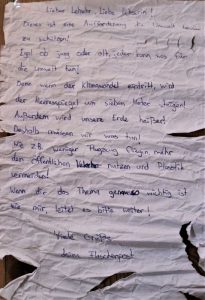 Lieber Lehrer, Liebe Lehrerin!
Dieses ist eine Aufforderung die Umwelt
zu schützen!
Egal ob jung oder alt, jeder kann was für
die Umwelt tun!
Denn wenn der Klimawandel eintritt, wird
der Meeresspiegel um sieben Meter steigen!
Außerdem wird unsere Erde heißer!
Deshalb müssen wir was tun!
Wie z.B. weniger Flugzeug fliegen, mehr
den öffentlichen nutzen und Plastik
vermeiden!
Wenn dir das Thema genauso wichtig ist
wie mir, leitet es bitte weiter!
Viele Grüße
deine Flaschenpost